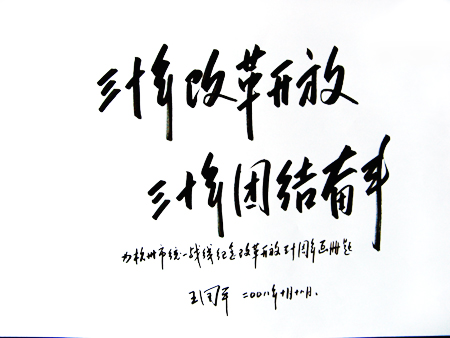 三十年改革开放
三十年团结奋斗
为杭州市统一战线纪念改革开放三十周年画册题
王国平 二〇〇八年十月十八日.